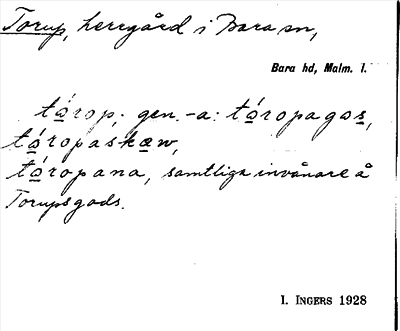 Torup, herrgård i Bara sn,
Bara hd, Malm. l.
tárop; gen. -a: táropagos,
táropaskæw,
táropana, samtliga invånare å
Torupsgods.
I. INGERS 1928